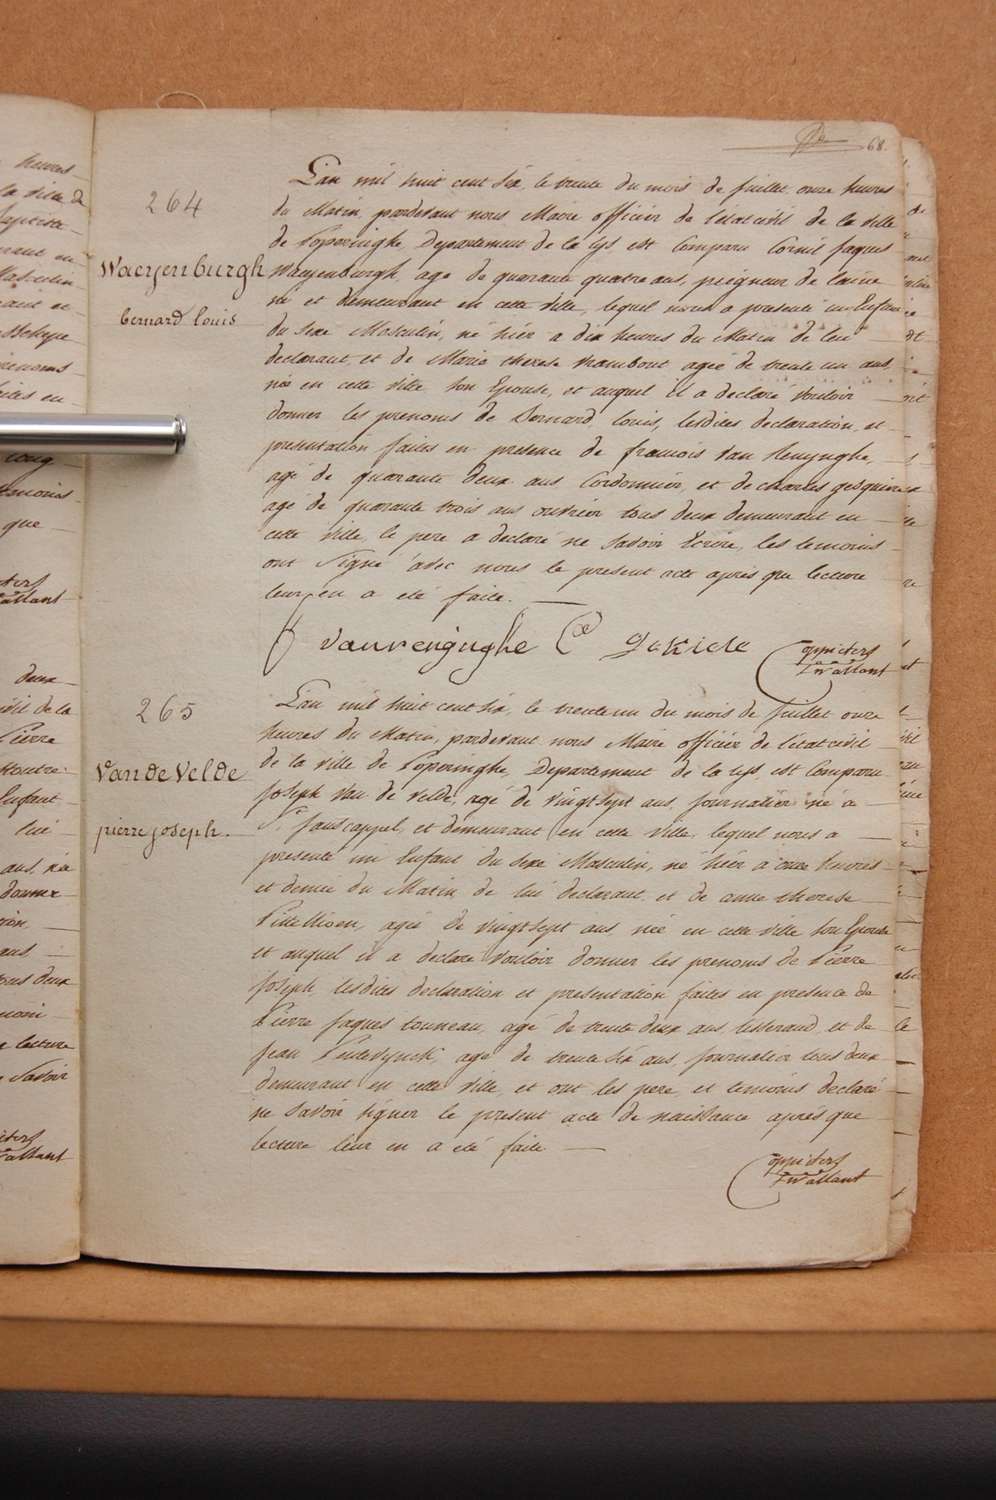 68.
264
Waeyenburgh
bernard louis
L'an mil huit cent six, le trente du mois de juillet onze heures
du Matin, pardevant nous Maire officier de l'état civil de la ville
de Poperinghe, Departement de la Lys est Comparu Cornil jaques
Waeyenburgh, agé de quarante quatre ans, peigneur de laine
né et demeurant en cette ville, lequel nous a presenté un Enfant
du sexe Masculin, né hier a dix heures du Matin de lui
declarant et de Marie therese agée de trente un ans,
née en cette ville son Epouse, et auquel il a declaré vouloir
donner les prenoms de Bernard louis, lesdites declaration et
presentation faites en presence de francois van renynghe,
agé de quarante deux ans Cordonnier, et de charles gesquiere
agé de quarante trois ans ouvrier tous deux demeurant en
cette ville, le pere a declaré ne savoir Ecrire, les temoins
ont signé avec nous le present acte après que lecture
leur en a été faite.
vanrenijnghe
265
Van de Velde
pierre joseph.
L'an mil huit cent six, le trente un du mois de juillet onze
heures du Matin, pardevant nous Maire officier de l'état civil
de la ville de Poperinghe, Departement de la Lys, est Comparu
joseph Van de Velde, agé de vingt sept ans, journalier né a
St. janscappel, et demeurant en cette ville, lequel nous a
presenté un Enfant du sexe Masculin, né hier à onze heures
et demie du Matin de lui declarant, et de anne therese
agée de vingt sept ans née en cette ville son Epouse
et auquel il a declaré vouloir donner les prenoms de Pierre
joseph, lesdites declaration et presentation faites en presence de
Pierre jaques tonneau, agé de trente deux ans, tisserand, et de
jean agé de trente six ans, journalier tous deux
demeurant en cette ville, et ont les pere, et temoins declaré
ne savoir signer le present acte de naissance après que
lecture leur en a été faite